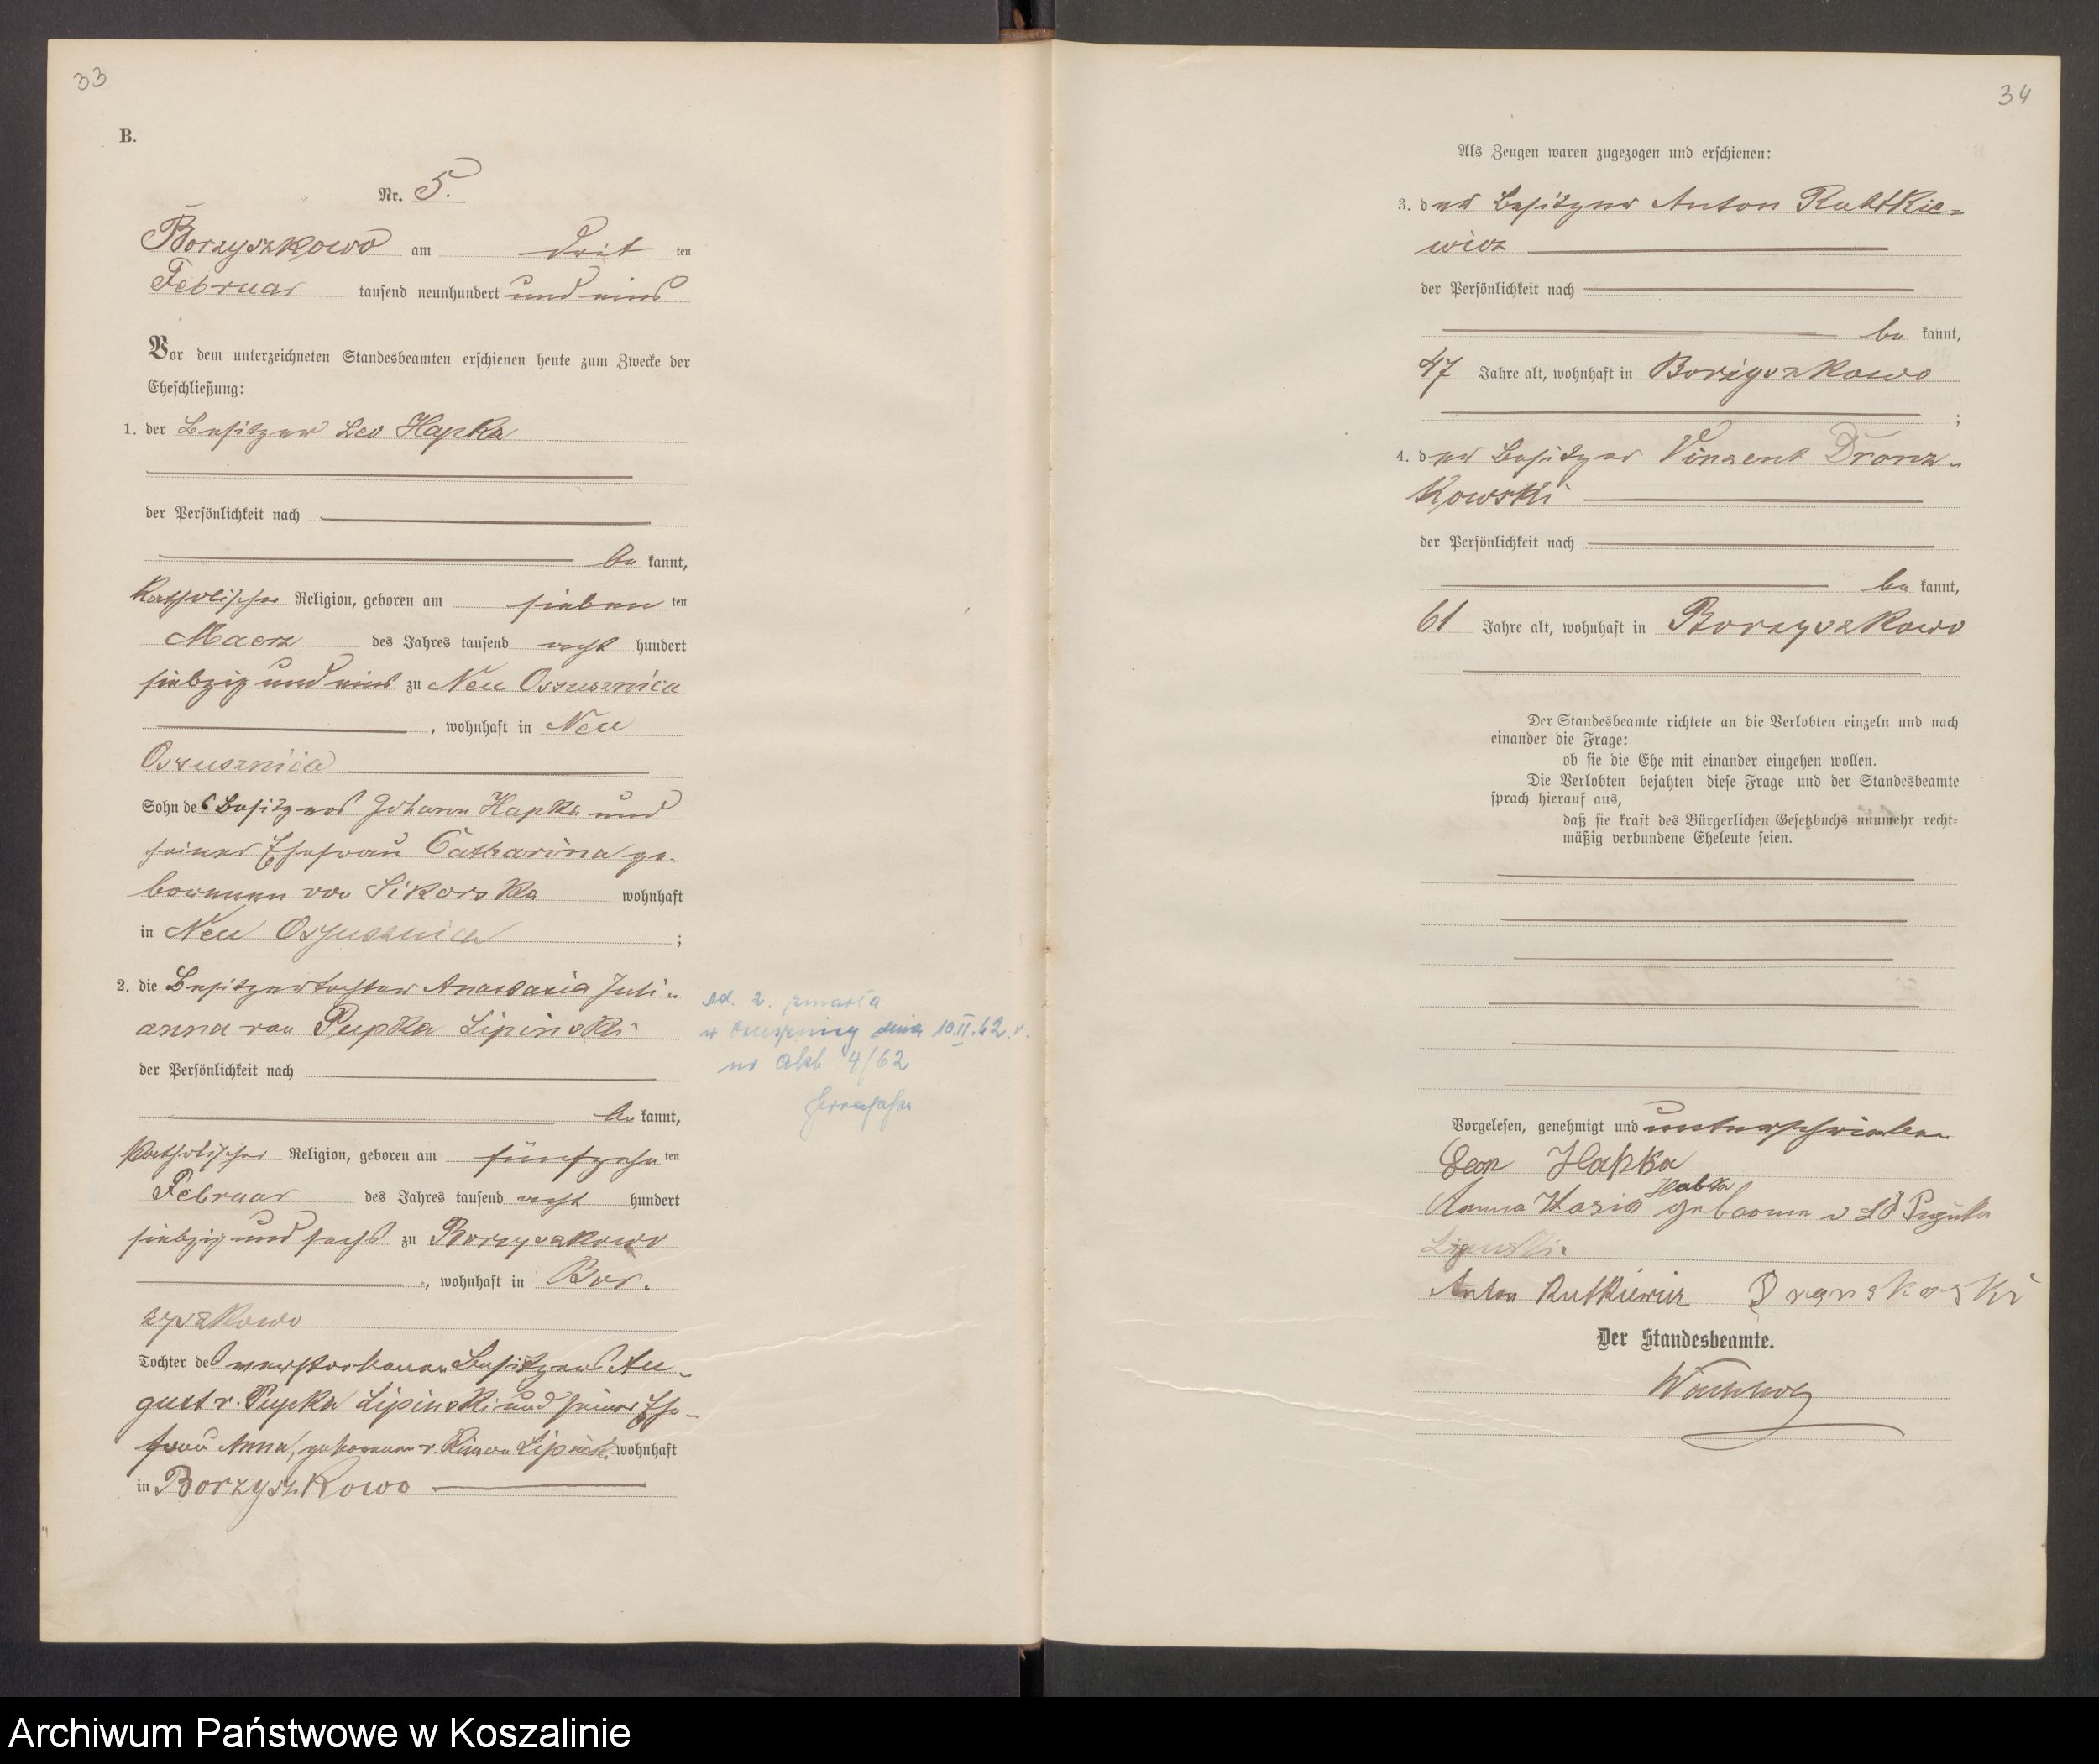 33
B.
Nr. 5.
Borzyszkowo am dritten
Februar tausend neunhundert und eins
Vor dem unterzeichneten Standesbeamten erschienen heute zum Zwecke der
Eheschließung:
1. der Besitzer Leo Hapka
der Persönlichkeit nach
bekannt,
katholischer Religion, geboren am siebenten
Maerz des Jahres tausend acht hundert
siebzig und eins zu Neu Ossusznica
, wohnhaft in Neu
Ossusznica
Sohn des Besitzers Johann Hapka und
seiner Ehefrau Catharina ge-
borenen von Sikorska wohnhaft
in Neu Ossusznica ;
2. die Besitzertochter Anastasia Juli-
anna von Pupka Lipinski
der Persönlichkeit nach
bekannt,
katholischer Religion, geboren am fünfzehnten
Februar des Jahres tausend acht hundert
siebzig und sechs zu Borzyszkowo
, wohnhaft in Bor-
zyszkowo
Tochter des verstorbenen Besitzers Au-
gust v. Pupka Lipinski und seiner Ehe-
frau Anna, geborenen v. Lipinski wohnhaft
in Borzyszkowo
Ad. 2. zmarła
w dnia 10.II.62 r.
nr akt 4/62
34
Als Zeugen waren zugezogen und erschienen:
3. der Besitzer Anton Rutkie-
wicz
der Persönlichkeit nach
bekannt,
47 Jahre alt, wohnhaft in Borzyszkowo
;
4. der Besitzer Vinzent Dronz-
kowski
der Persönlichkeit nach
bekannt,
61 Jahre alt, wohnhaft in Borzyszkowo
Der Standesbeamte richtete an die Verlobten einzeln und nach
einander die Frage:
ob sie die Ehe mit einander eingehen wollen.
Die Verlobten bejahten diese Frage und der Standesbeamte
sprach hierauf aus,
daß sie kraft des Bürgerlichen Gesetzbuchs nunmehr recht-
mäßig verbundene Eheleute seien.
Vorgelesen, genehmigt und unterschrieben
Leon Hapka
Habka
Anna geborene v
Lipinski
Anton Rutkiewicz
Der Standesbeamte.
Archiwum Państwowe w Koszalinie